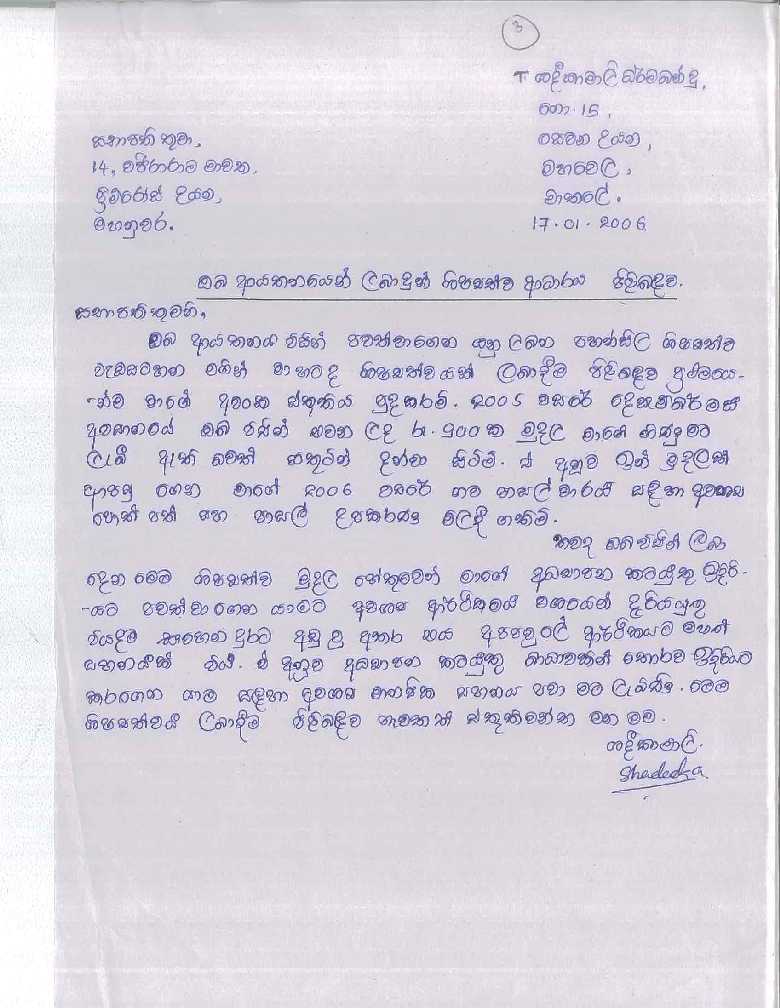 3
සභාපති තුමා,
14, වජිරාරාම මාවත,
ප්‍රිම්රෝස් උයන,
මහනුවර.
T ශදීකාමාලි ධර්මබන්දු,
නො. 15,
සෙවන උයන,
මහවෙල,
මාතලේ.
17.01.2006
ඔබ ආයතනයෙන් ලබාදුන් ශිෂ්‍යත්ව ආධාරය පිළිබඳව.
සභාපතිතුමනි,
ඔබ ආයතනය විසින් පවත්වාගෙන යනු ලබන පහන්සිල ශිෂ්‍යත්ව
වැඩසටහන මගින් මා හටද ශිෂ්‍යත්වයක් ලබාදීම පිළිබඳව ප්‍රථමයෙ-
-න්ම මාගේ අවංක ස්තූතිය පුදකරමි. 2005 වසරේ දෙසැම්බර් මස
අවසානයේ ඔබ විසින් එවන ලද රු. 900 ක මුදල මාගේ ගිණුමට
ලැබී ඇති බවත් සතුටින් දන්වා සිටිමි. ඒ අනුව මුදලක්
ආපසු ගෙන මාගේ 2006 වසරේ නව පාසල් වාරය සඳහා අවශ්‍ය
පොත් පත් සහ පාසල් උපකරණ මිලදී ගතිමි.
තවද ඔබ විසින් ලබා
දෙන මෙම ශිෂ්‍යත්ව මුදල හේතුවෙන් මාගේ අධ්‍යාපන කටයුතු ඉදිරි-
-යට පවත්වාගෙන යාමට අවශ්‍ය ආර්ථිකමය වශයෙන් දැරියයුතු
වියදම බොහෝ දුරට අඩු වූ අතර එය අප පවුලේ ආර්ථිකයට මහත්
සහනයක් විය. ඒ අනුව අධ්‍යාපන කටයුතු බාධාවකින් තොරව ඉදිරියට
කරගෙන යාම සඳහා අවශ්‍ය මානසික සහනය පවා මට ලැබිණි. මෙම
ශිෂ්‍යත්වය ලබාදීම පිළිබඳව නැවතත් ස්තූතිවන්ත වන මම.
ශදීකාමාලි.
Shadeeka